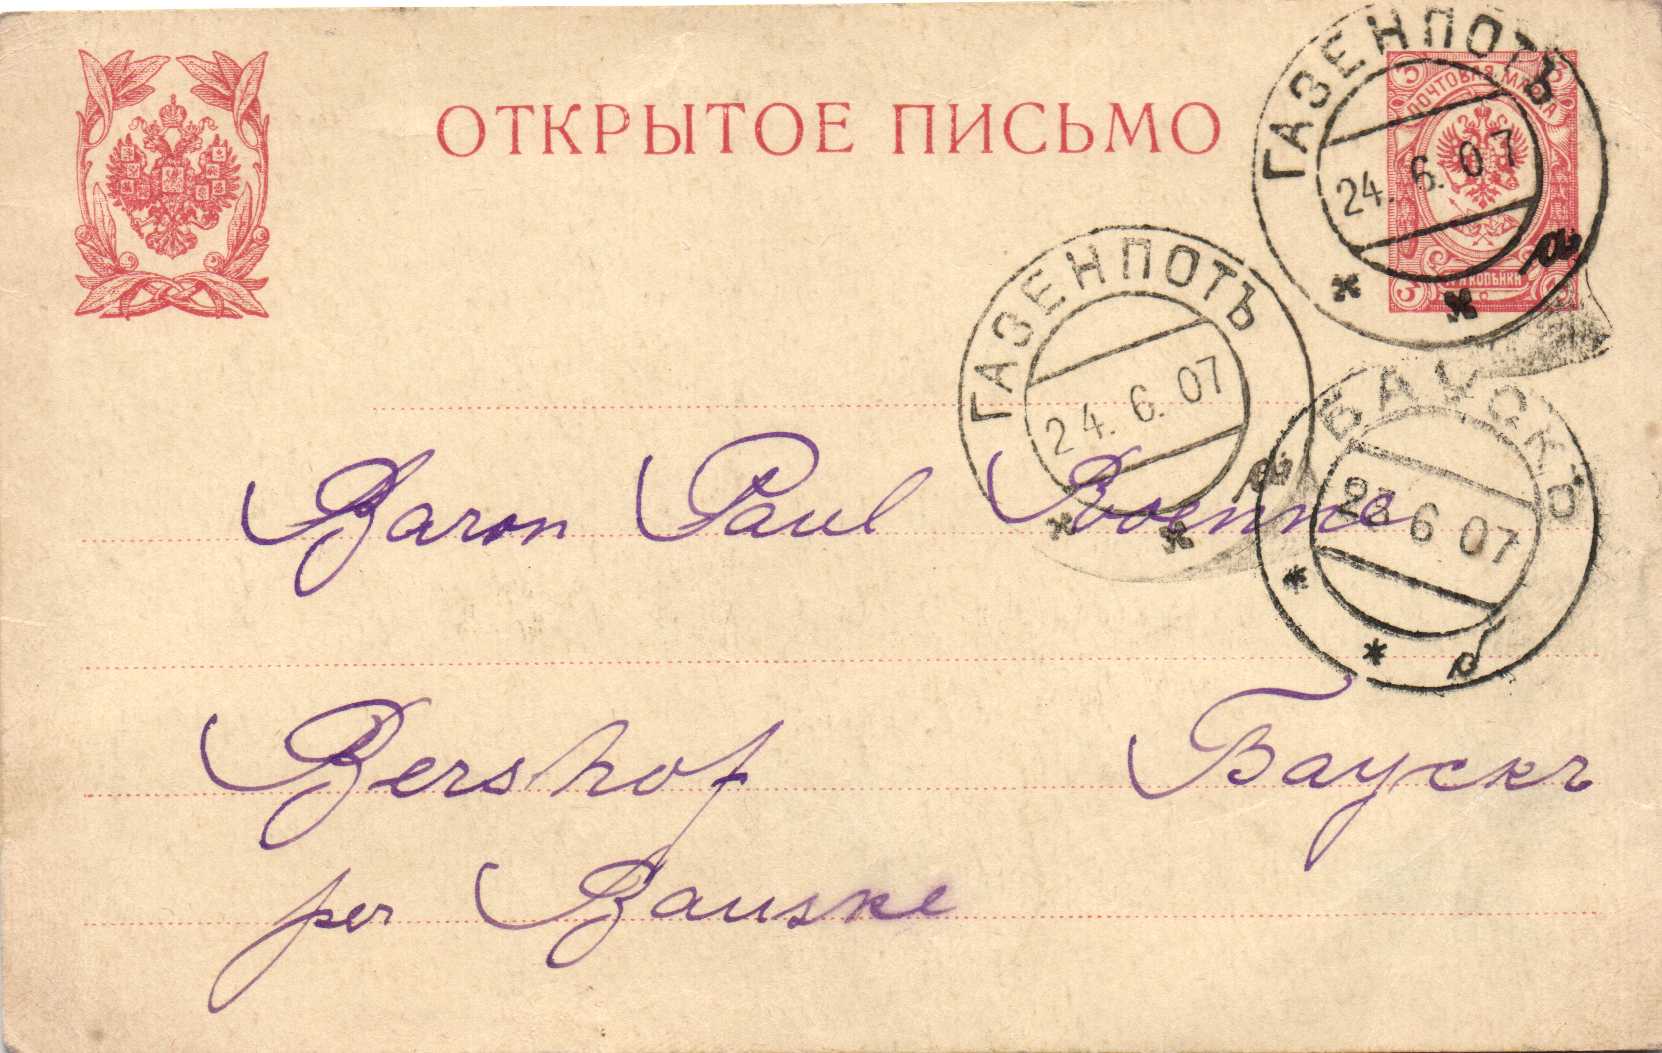 ОТКРЫТОЕ ПИСЬМО
ПОЧТОВАЯ МАРКА
3 3
ТРИ КОПѢЙКИ
3 3
ГАЗЕНПОТЪ
24.6.07
а
ГАЗЕНПОТЪ
24.6.07
а
БАУСКЪ
6 07
б
Baron Paul
Bershof Баускъ
per Bauske